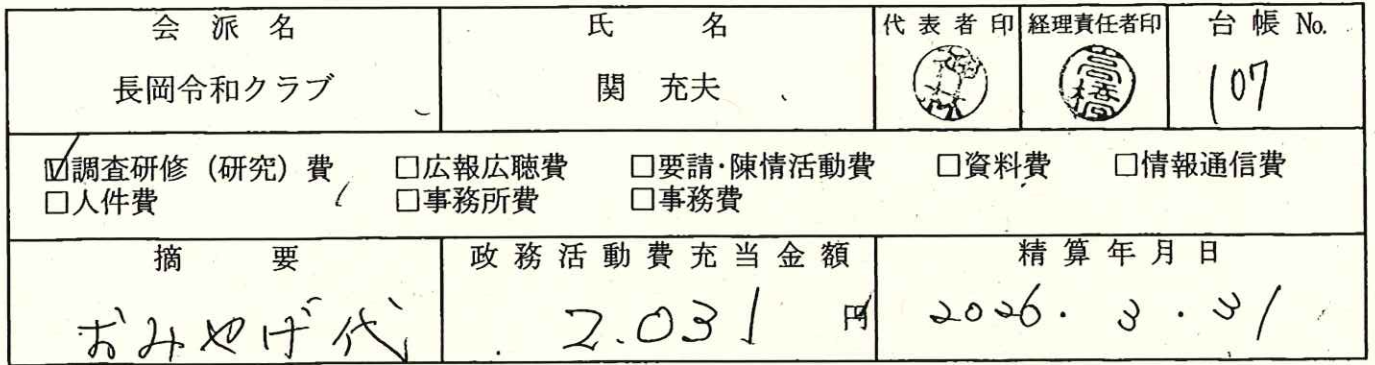 会派名 氏名 代表者印 経理責任者印 台帳 No.
長岡令和クラブ 関 充夫 髙橋 107
☑調査研修（研究）費 □広報広聴費 □要請・陳情活動費 □資料費 □情報通信費
□人件費 □事務所費 □事務費
摘要 政務活動費充当金額 精算年月日
おみやげ代 2.031 円 2026. 3. 31